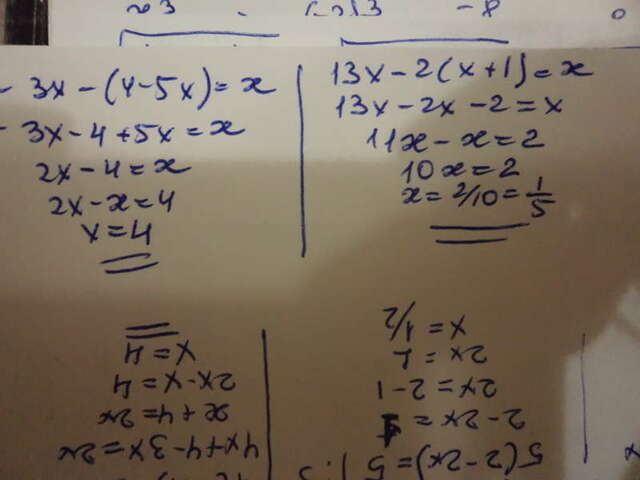 - 3x-(4-5x)=x
- 3x-4+5x=x
2x-4=x
2x-x=4
x=4
13x-2(x+1)=x
13x-2x-2=x
11x-x=2
10x=2
x=2/10=1/5
5(2-2x)=5 |:5
2-2x=1
2x=2-1
2x=1
x=1/2
4x+4-3x=2x
x+4=2x
2x-x=4
x=4